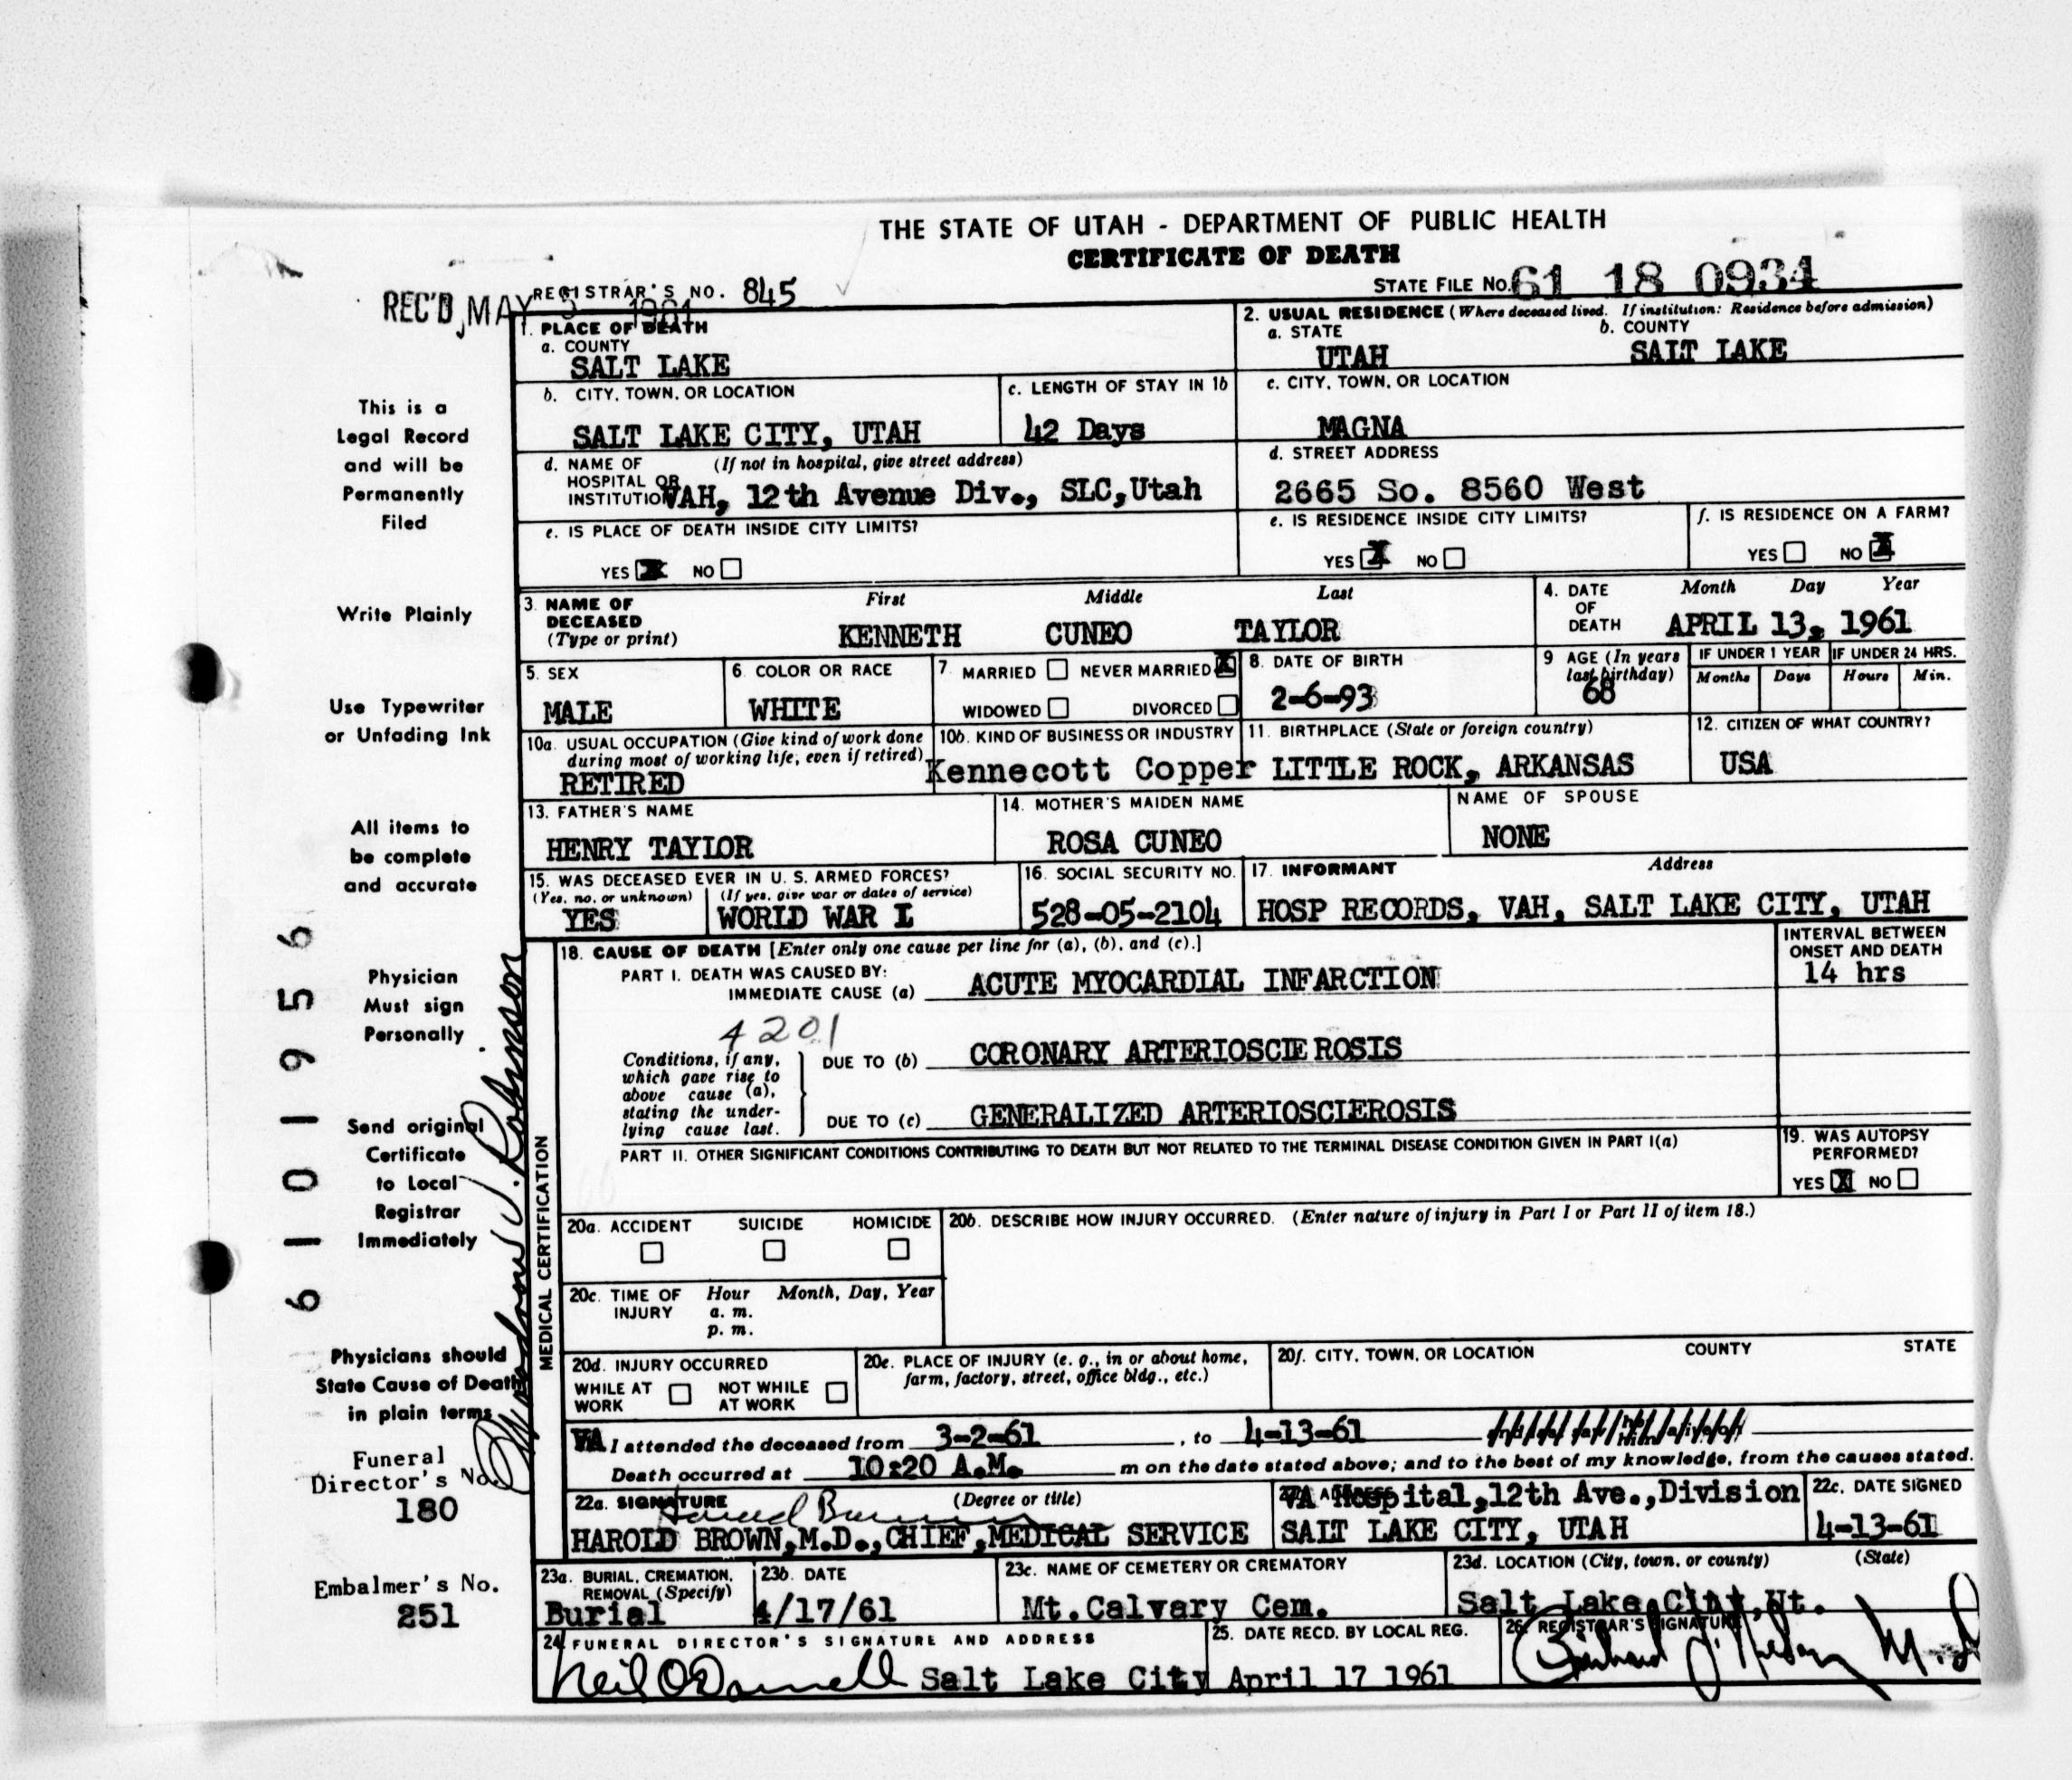 THE STATE OF UTAH - DEPARTMENT OF PUBLIC HEALTH
CERTIFICATE OF DEATH
REC'D MAY 3 1961
REGISTRAR'S NO. 845
STATE FILE NO. 61 18 0934
1. PLACE OF DEATH
a. COUNTY
SALT LAKE
2. USUAL RESIDENCE (Where deceased lived. If institution: Residence before admission)
a. STATE b. COUNTY
UTAH SALT LAKE
b. CITY, TOWN, OR LOCATION
SALT LAKE CITY, UTAH
c. LENGTH OF STAY IN 1b
42 Days
c. CITY, TOWN, OR LOCATION
MAGNA
d. NAME OF (If not in hospital, give street address)
HOSPITAL OR
INSTITUTION VAH, 12th Avenue Div., SLC,Utah
d. STREET ADDRESS
2665 So. 8560 West
e. IS PLACE OF DEATH INSIDE CITY LIMITS?
YES X NO
e. IS RESIDENCE INSIDE CITY LIMITS?
YES X NO
f. IS RESIDENCE ON A FARM?
YES NO X
3. NAME OF DECEASED (Type or print)
First Middle Last
KENNETH CUNEO TAYLOR
4. DATE OF DEATH
Month Day Year
APRIL 13, 1961
5. SEX
MALE
6. COLOR OR RACE
WHITE
7. MARRIED NEVER MARRIED X
WIDOWED DIVORCED
8. DATE OF BIRTH
2-6-93
9 AGE (In years last birthday)
68
IF UNDER 1 YEAR IF UNDER 24 HRS.
Months Days Hours Min.
10a. USUAL OCCUPATION (Give kind of work done
during most of working life, even if retired)
RETIRED
10b. KIND OF BUSINESS OR INDUSTRY
Kennecott Copper
11. BIRTHPLACE (State or foreign country)
LITTLE ROCK, ARKANSAS
12. CITIZEN OF WHAT COUNTRY?
USA
13. FATHER'S NAME
HENRY TAYLOR
14. MOTHER'S MAIDEN NAME
ROSA CUNEO
NAME OF SPOUSE
NONE
15. WAS DECEASED EVER IN U. S. ARMED FORCES?
(Yes, no, or unknown) (If yes, give war or dates of service)
YES WORLD WAR I
16. SOCIAL SECURITY NO.
528-05-2104
17. INFORMANT Address
HOSP RECORDS, VAH, SALT LAKE CITY, UTAH
MEDICAL CERTIFICATION
18. CAUSE OF DEATH [Enter only one cause per line for (a), (b), and (c).]
INTERVAL BETWEEN
ONSET AND DEATH
PART I. DEATH WAS CAUSED BY:
IMMEDIATE CAUSE (a) ACUTE MYOCARDIAL INFARCTION
14 hrs
4201
Conditions, if any,
which gave rise to
above cause (a),
stating the under-
lying cause last.
DUE TO (b) CORONARY ARTERIOSCLEROSIS
DUE TO (c) GENERALIZED ARTERIOSCLEROSIS
PART II. OTHER SIGNIFICANT CONDITIONS CONTRIBUTING TO DEATH BUT NOT RELATED TO THE TERMINAL DISEASE CONDITION GIVEN IN PART I(a)
19. WAS AUTOPSY
PERFORMED?
YES X NO
20a. ACCIDENT SUICIDE HOMICIDE
20b. DESCRIBE HOW INJURY OCCURRED. (Enter nature of injury in Part I or Part II of item 18.)
20c. TIME OF INJURY
Hour Month, Day, Year
a. m.
p. m.
20d. INJURY OCCURRED
WHILE AT WORK NOT WHILE AT WORK
20e. PLACE OF INJURY (e. g., in or about home,
farm, factory, street, office bldg., etc.)
20f. CITY, TOWN, OR LOCATION COUNTY STATE
VA I attended the deceased from 3-2-61, to 4-13-61
Death occurred at 10:20 A.M. m on the date stated above; and to the best of my knowledge, from the causes stated.
22a. SIGNATURE (Degree or title)
Harold Brown
HAROLD BROWN,M.D.,CHIEF,MEDICAL SERVICE
ADDRESS
VA Hospital,12th Ave.,Division
SALT LAKE CITY, UTAH
22c. DATE SIGNED
4-13-61
23a. BURIAL, CREMATION,
REMOVAL (Specify)
Burial
23b. DATE
4/17/61
23c. NAME OF CEMETERY OR CREMATORY
Mt.Calvary Cem.
23d. LOCATION (City, town, or county) (State)
Salt Lake City,Ut.
24 FUNERAL DIRECTOR'S SIGNATURE AND ADDRESS
Neil O'Donnell Salt Lake City
25. DATE RECD. BY LOCAL REG.
April 17 1961
26. REGISTRAR'S SIGNATURE
M.D.
This is a
Legal Record
and will be
Permanently
Filed
Write Plainly
Use Typewriter
or Unfading Ink
All items to
be complete
and accurate
Physician
Must sign
Personally
Send original
Certificate
to Local
Registrar
Immediately
Physicians should
State Cause of Death
in plain terms
Funeral
Director's No.
180
Embalmer's No.
251
6101956
J. Robinson